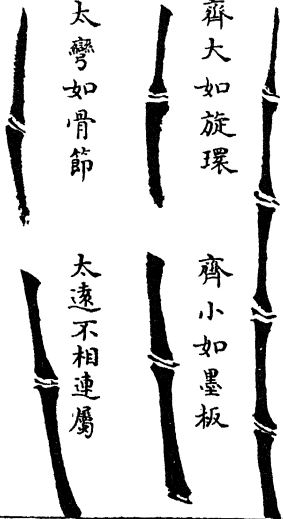 齊大如旋環
齊小如墨板
太彎如骨節
太遠不相連屬